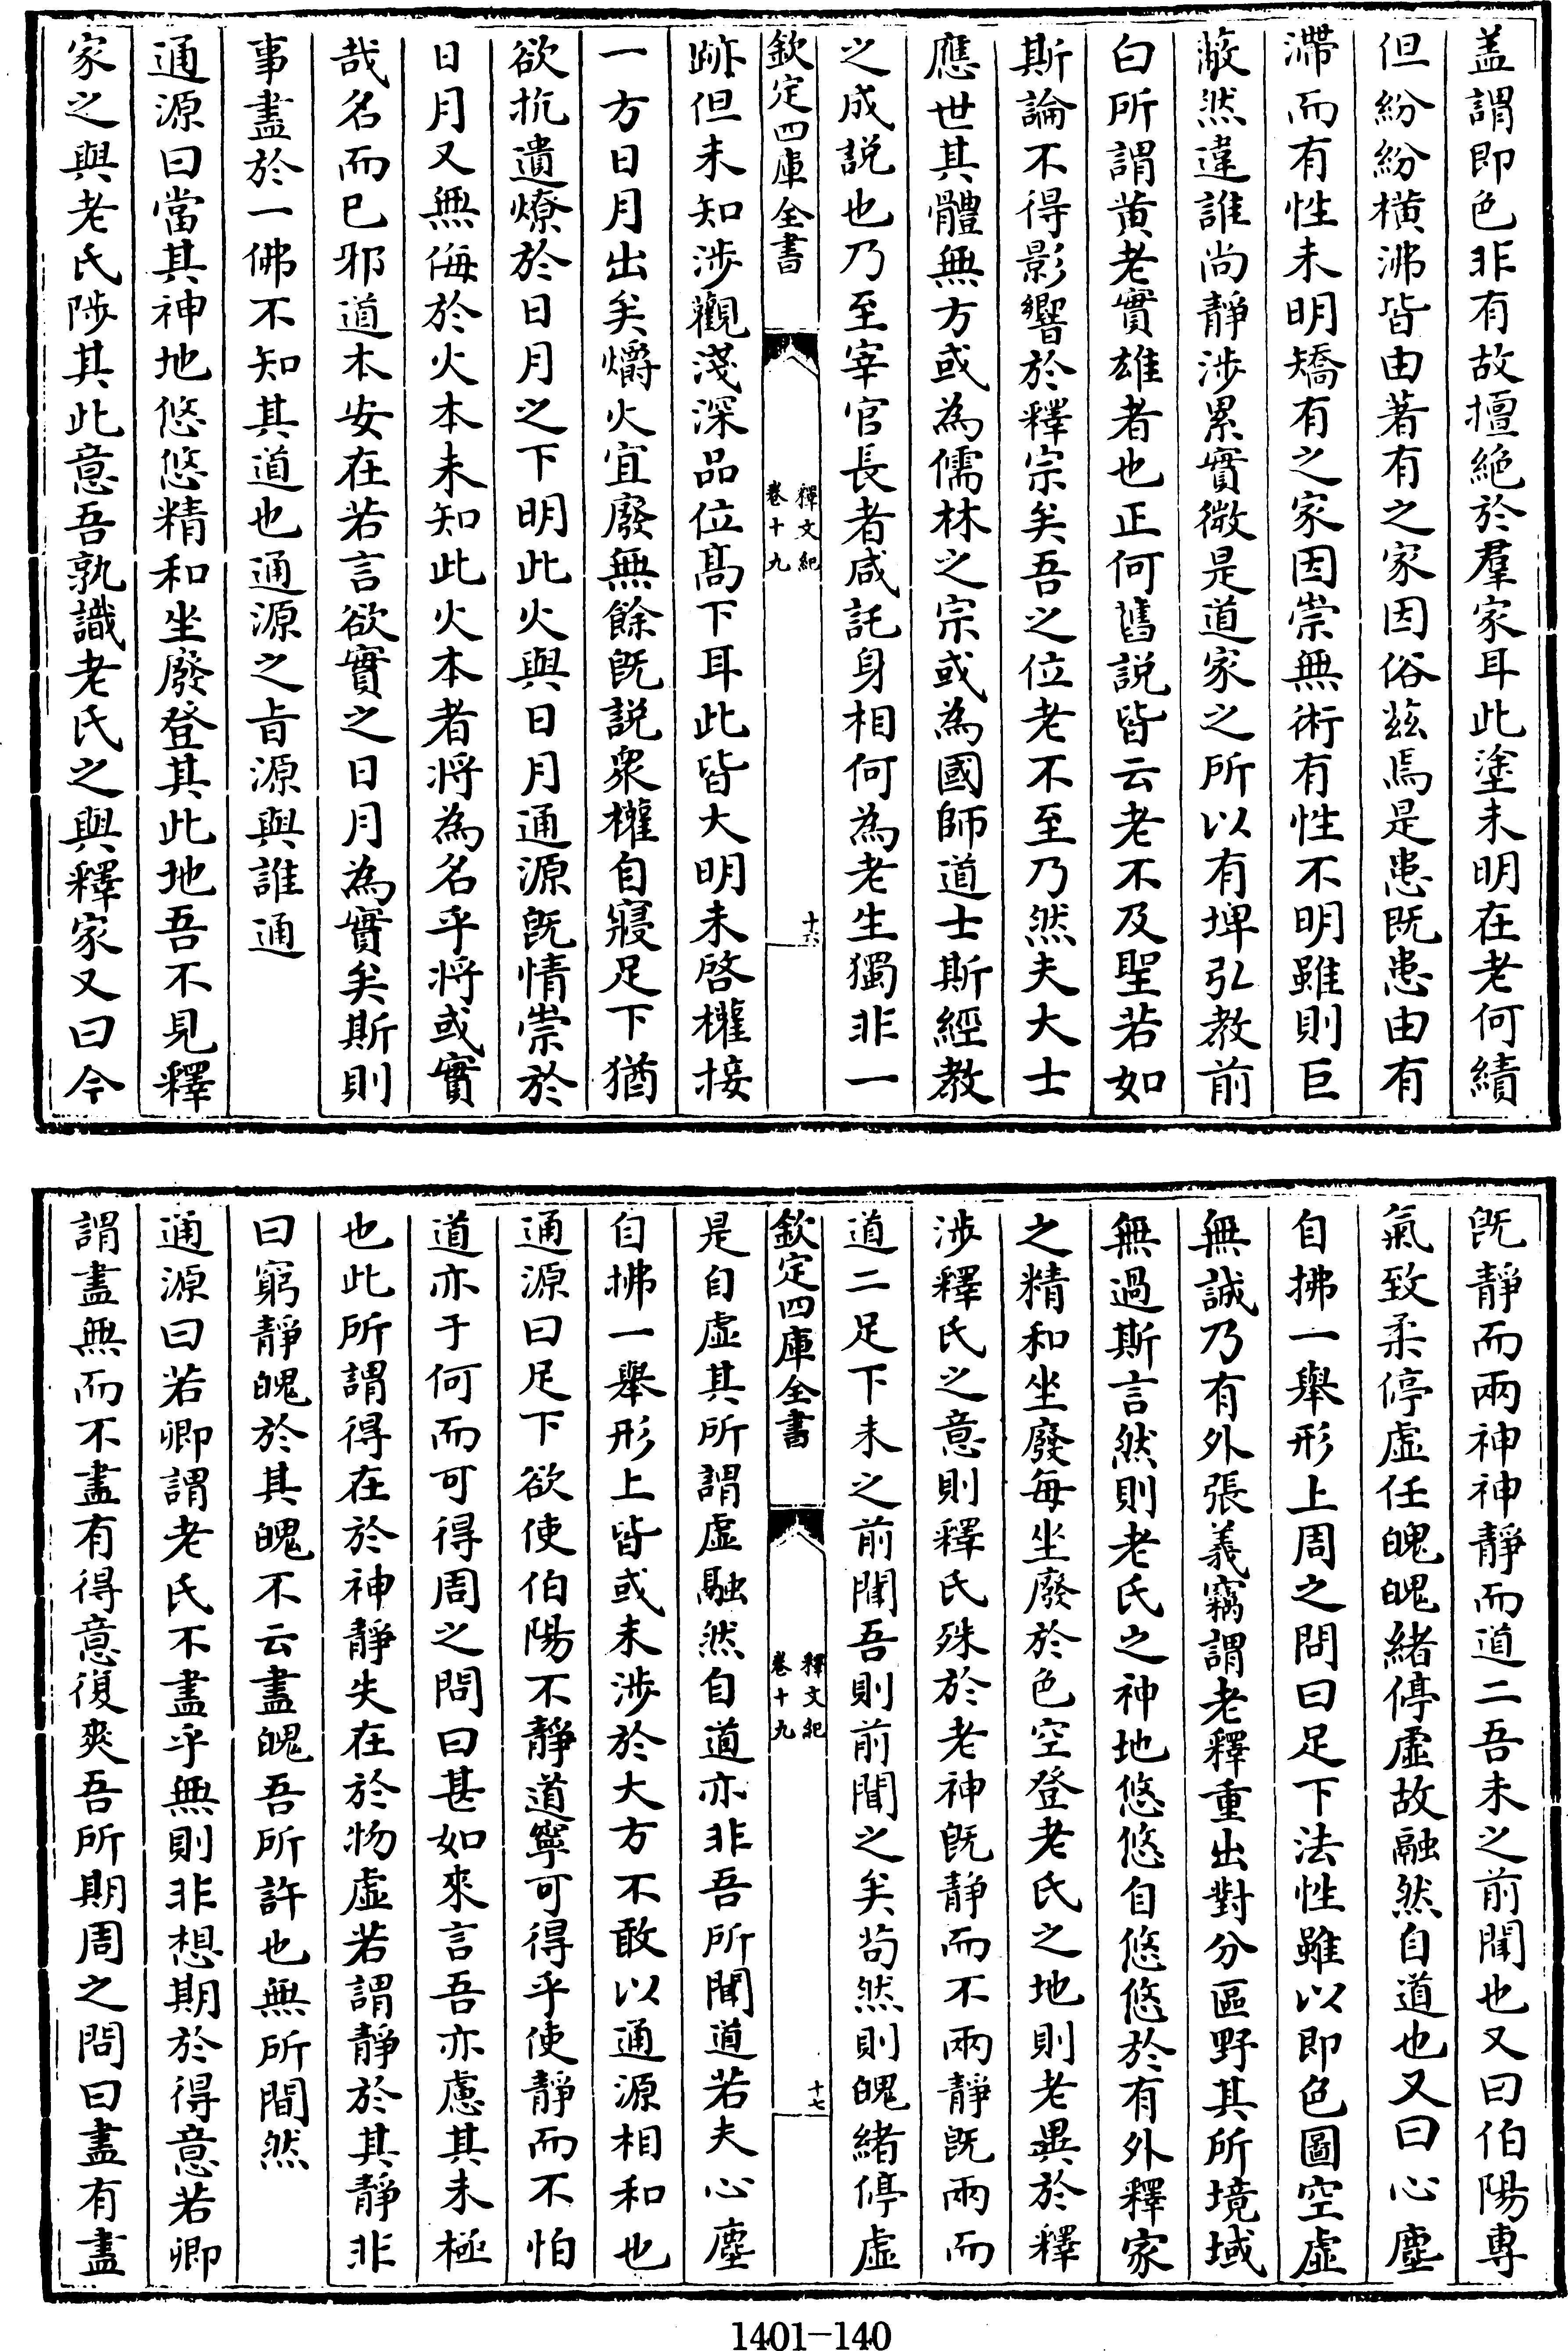 盖謂即色非有故擅絶於羣家耳此塗未明在老何績
但紛紛橫沸皆由著有之家因俗兹焉是患既患由有
滯而有性未明矯有之家因崇無術有性不明雖則巨
蔽然違誰尚靜涉累實微是道家之所以有埤弘教前
白所謂黄老實雄者也正何舊説皆云老不及聖若如
斯論不得影響於釋宗矣吾之位老不至乃然夫大士
應世其體無方或為儒林之宗或為國師道士斯經教
之成説也乃至宰官長者咸託身相何為老生獨非一
欽定四庫全書
釋文紀
卷十九
十六
跡但未知涉觀淺深品位髙下耳此皆大明未啓權接
一方日月出矣爝火宜廢無餘既説衆權自寢足下猶
欲抗遺燎於日月之下明此火與日月通源既情崇於
日月又無侮於火本未知此火本者将為名乎将或實
哉名而已邪道本安在若言欲實之日月為實矣斯則
事盡於一佛不知其道也通源之旨源與誰通
通源曰當其神地悠悠精和坐廢登其此地吾不見釋
家之與老氏陟其此意吾孰識老氏之與釋家又曰今
既靜而兩神神靜而道二吾未之前聞也又曰伯陽專
氣致柔停虚任魄魄緒停虚故融然自道也又曰心塵
自拂一舉形上周之問曰足下法性雖以即色圖空虚
無誠乃有外張義竊謂老釋重出對分區野其所境域
無過斯言然則老氏之神地悠悠自悠悠於有外釋家
之精和坐廢每坐廢於色空登老氏之地則老異於釋
涉釋氏之意則釋氏殊於老神既靜而不兩靜既兩而
道二足下未之前聞吾則前聞之矣苟然則魄緒停虚
欽定四庫全書
釋文紀
卷十九
十七
是自虚其所謂虚融然自道亦非吾所聞道若夫心塵
自拂一舉形上皆或未涉於大方不敢以通源相和也
通源曰足下欲使伯陽不靜道寧可得乎使靜而不怕
道亦于何而可得周之問曰甚如來言吾亦慮其未極
也此所謂得在於神靜失在於物虚若謂靜於其靜非
曰窮靜魄於其魄不云盡魄吾所許也無所間然
通源曰若卿謂老氏不盡乎無則非想期於得意若卿
謂盡無而不盡有得意復爽吾所期周之問曰盡有盡
1401-140